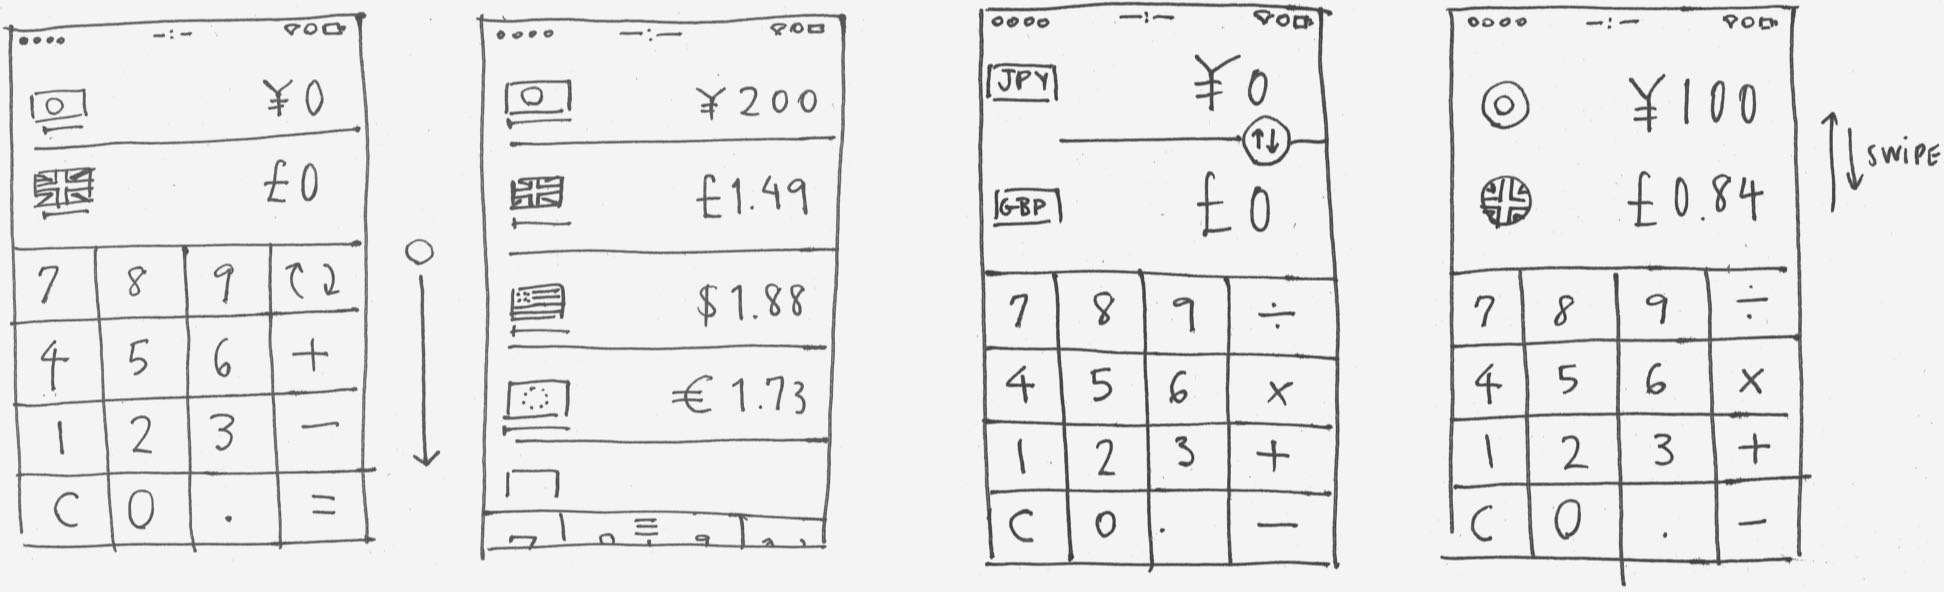 ¥0
£0
7 8 9
4 5 6 +
1 2 3 −
C 0 . =
¥200
£1.49
$1.88
€1.73
JPY ¥0
GBP £0
7 8 9 ÷
4 5 6 ×
1 2 3 +
C 0 . −
¥100
£0.84
7 8 9 ÷
4 5 6 ×
1 2 3 +
C 0 . −
SWIPE